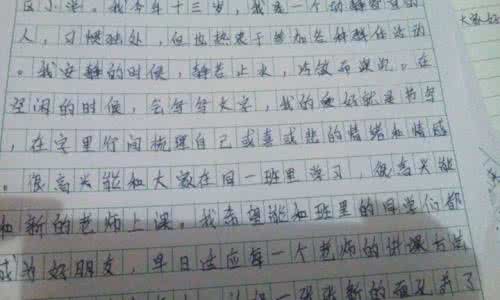 区小学。我今年十三岁，我是一个动静皆宜的
人，习惯独处，但也热衷于参加各种群体活动
。我安静的时候，静若止水，冷傲而深沉。在
空闲的时候，会写写文字，我的爱好就是书写
，在字里行间梳理自己或喜或悲的情绪和情感
。很高兴能和大家在同一班里学习，很高兴能
和新的老师上课。我希望能和班里的同学们都
成为好朋友，早日适应每一个老师的讲课方法
一张张新的面孔